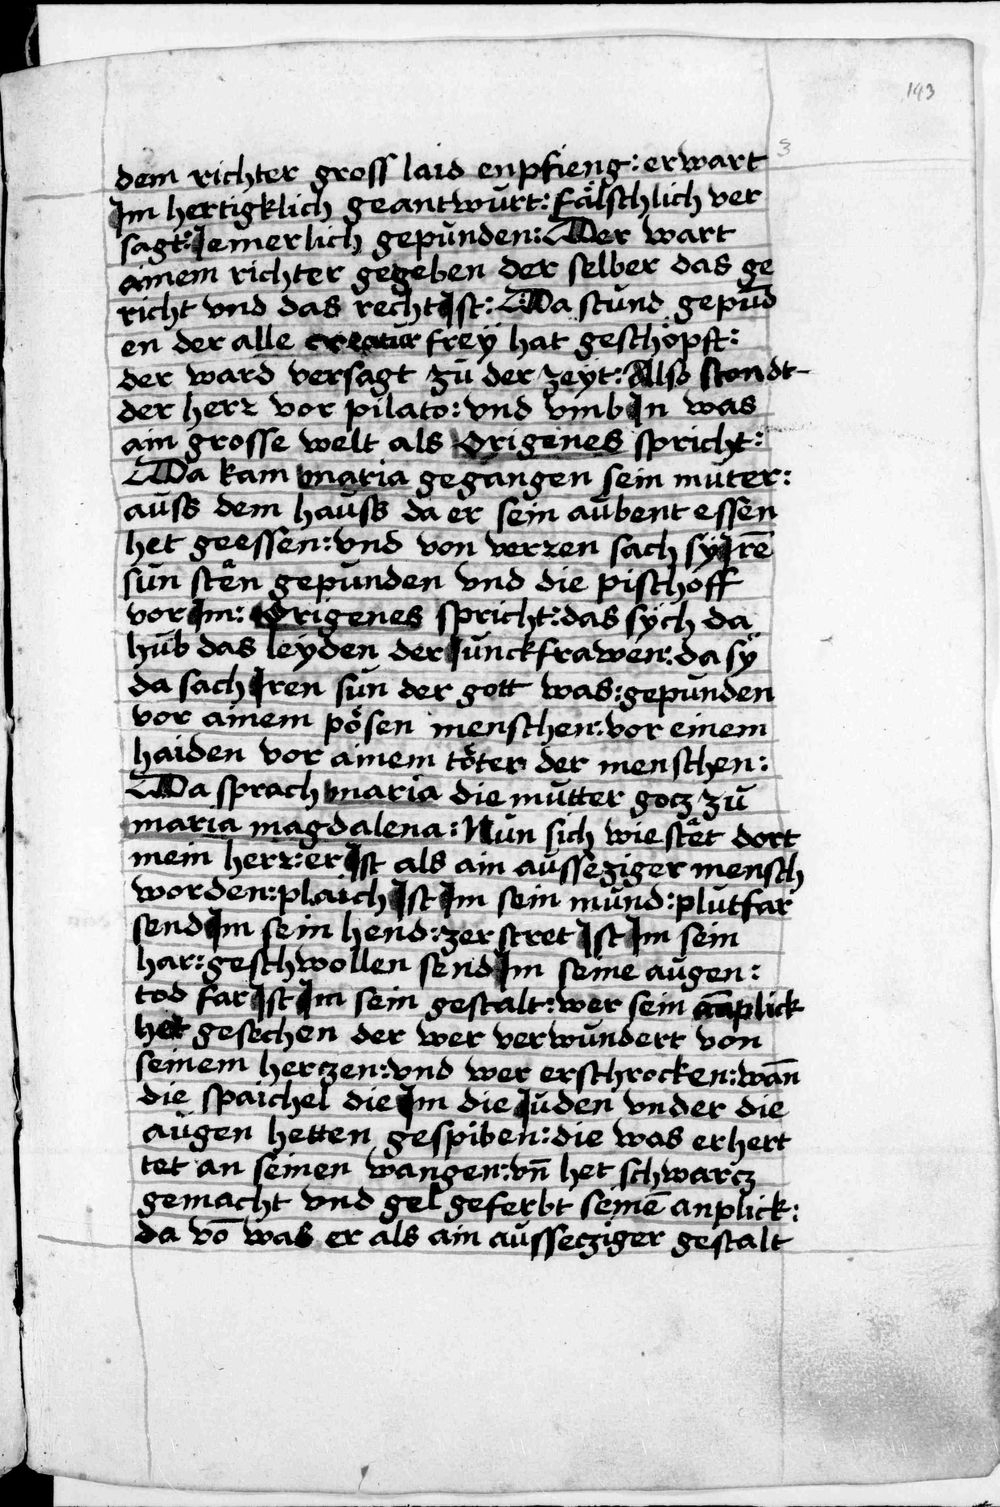 143
3
dem richter gross laid enpfieng: er wart
Im hertigklich geantwúrt: fälschlich ver
sagt: Jemerlich gepúnden: Der wart
ainem richter gegeben der selber das ge
richt vnd das recht Ist: Da stúnd gepúnd
en der alle creatúr frey hat geschöpft:
der ward versagt zú der zeyt: Also stondt
der herr vor pilato: vnd vmb In was
ain grosse welt als Origenes spricht:
Da kam maria gegangen sein múter:
aúss dem haúss da er sein aúbent essen
het geessen: vnd von verren sach sÿ Irē
sún stën gepúnden vnd die pischoff
vor Im: Origenes spricht: das sÿch da
húb das leÿden der Júnckfrawen: da sÿ
da sach Iren sún der gott was: gepúnden
vor ainem pösen menschen: vor einem
haiden vor ainem töter der menschen:
Da sprach maria die mútter gocz zú
maria magdalena: Nún sich wie stët dort
mein herr: er Ist als ain aússeziger mensch
worden: plaich Ist Im sein múnd: plútfar
send Im sein hend: zerstret Ist Im sein
har: geschwollen send Im seine aúgen:
tod far Ist Im sein gestalt: wer sein anplick
het gesechen der wer verwúndert von
seinem herczen: vnd wer erschrocken: wan̄
die spaichel die Im die Júden vnder die
aúgen hetten gespiben: die was erhert
tet an seinen wangen: vn̄ het schwarcz
gemacht vnd gel geferbt seinē anplick:
da vō was er als ain aússecziger gestalt